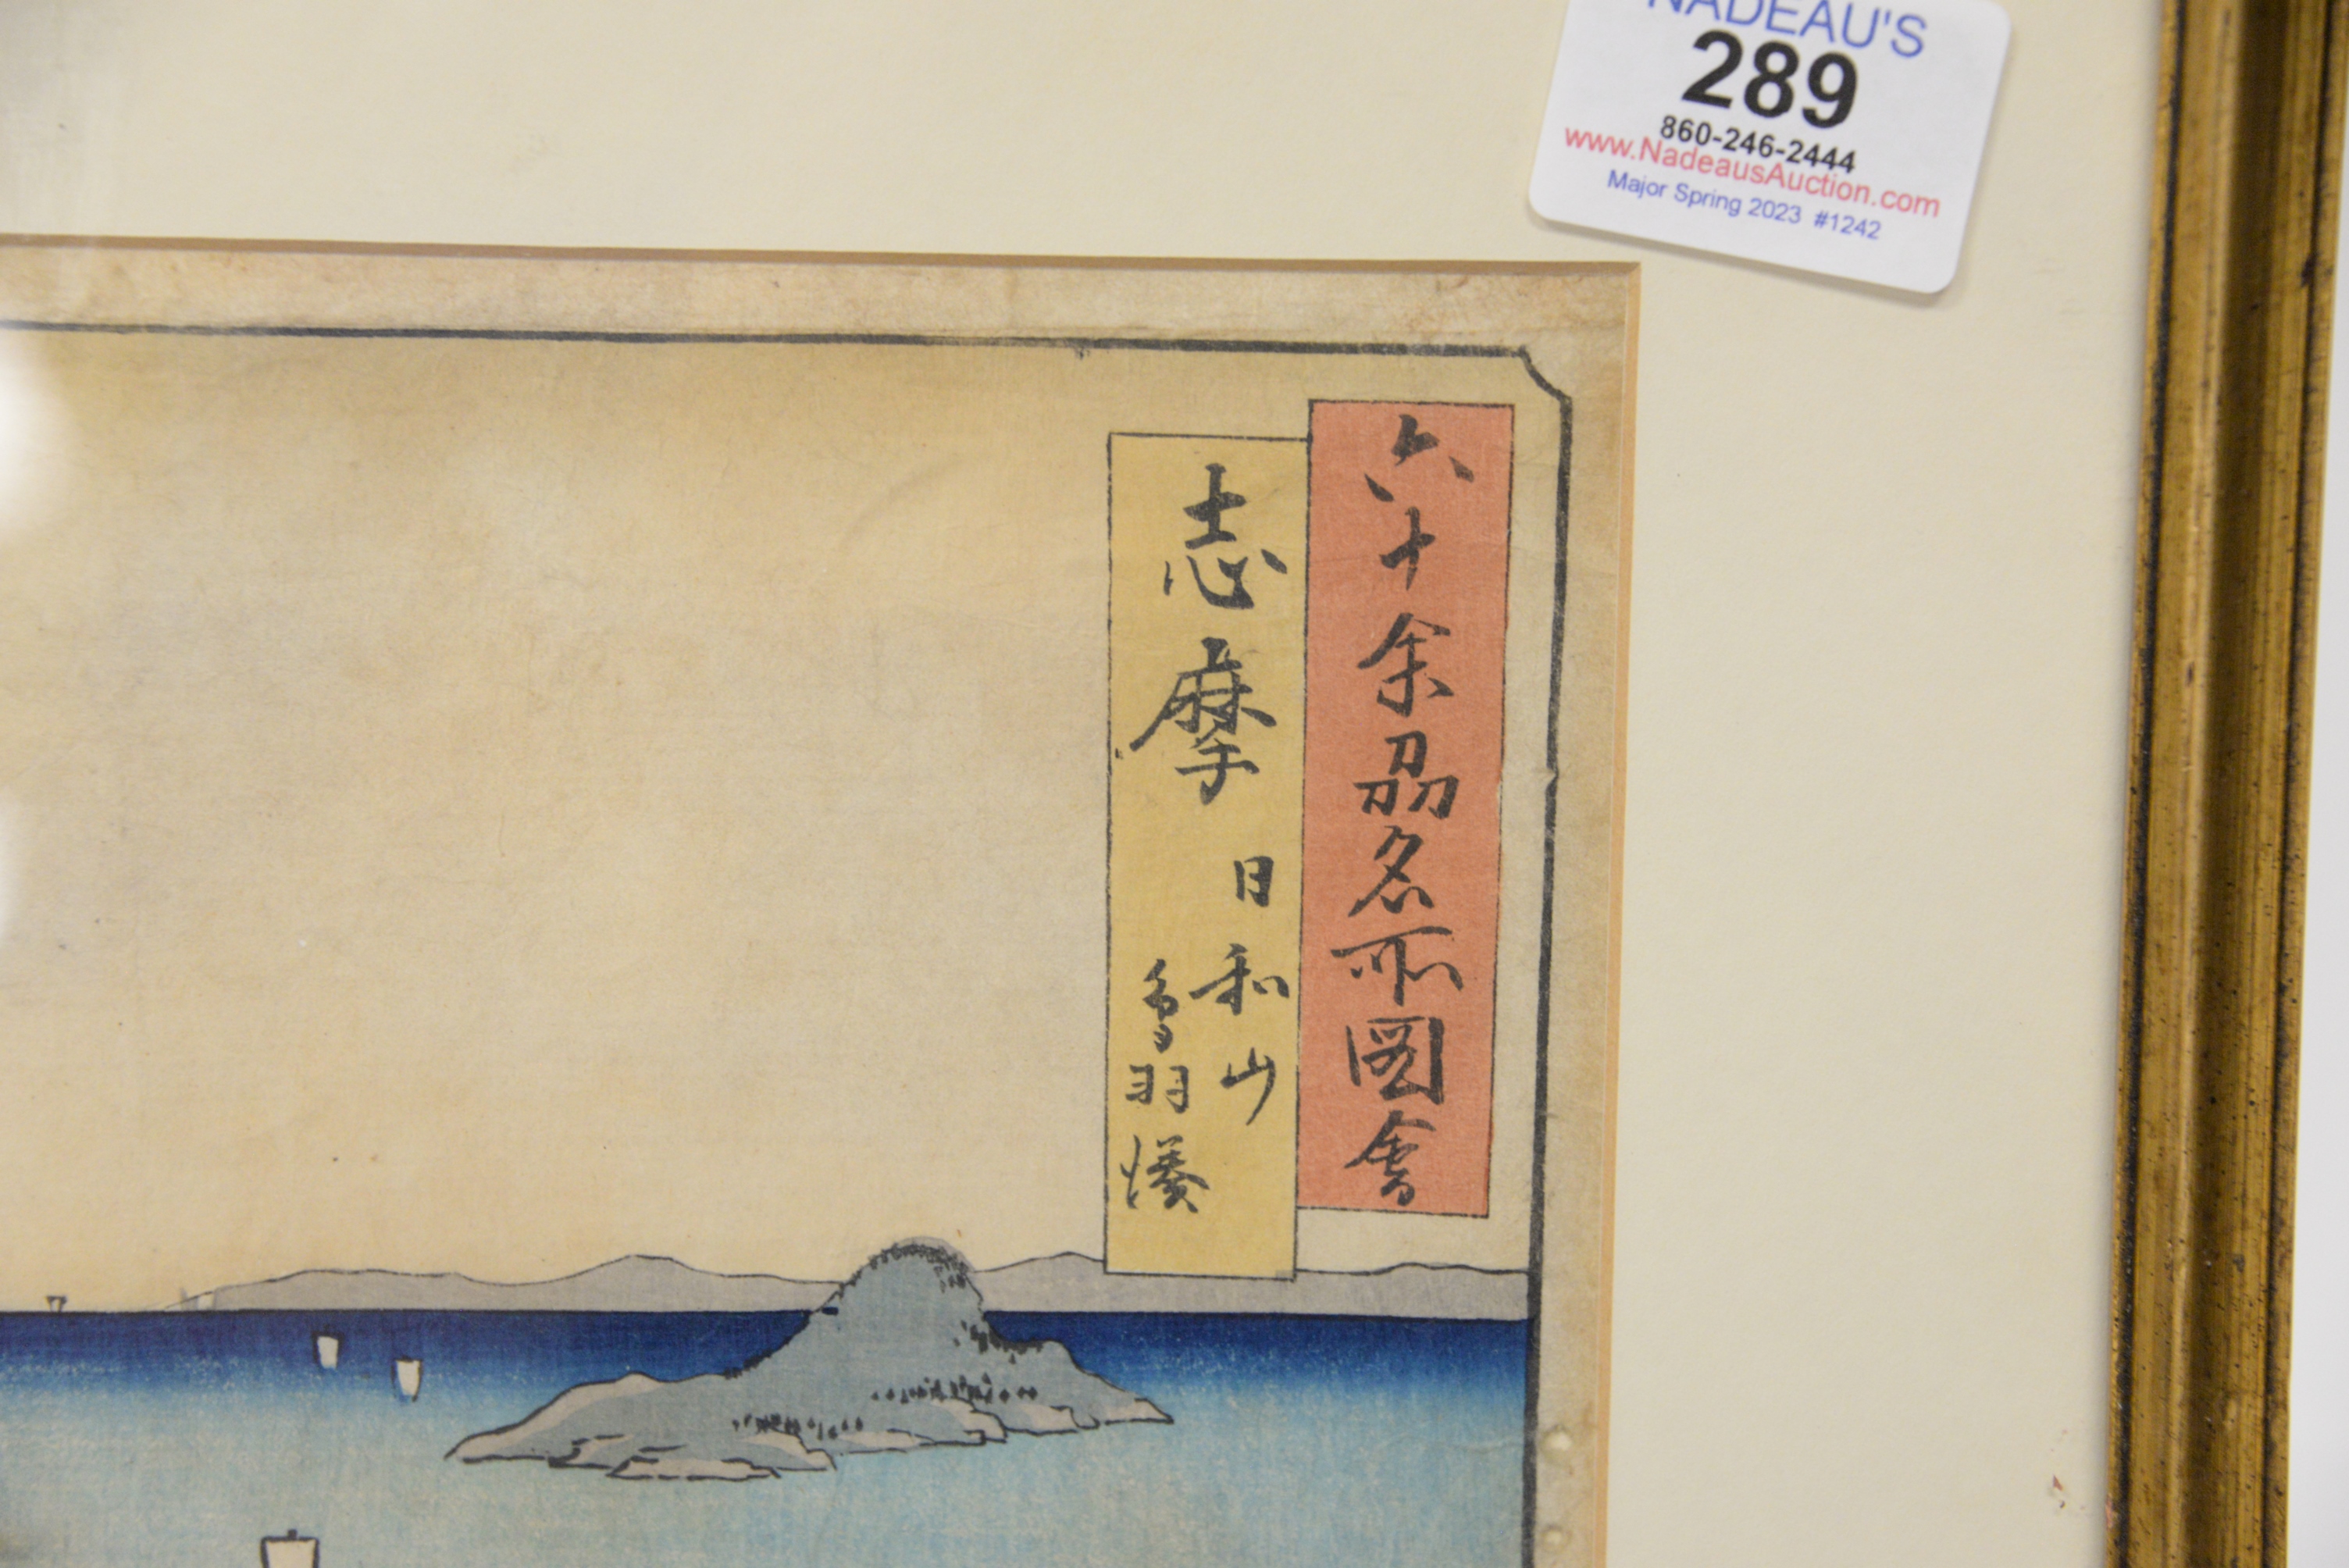 NADEAU'S
289
860-246-2444
www.NadeausAuction.com
Major Spring 2023 #1242
六十余刕名所圖會
志摩
日和山
鳥羽湊